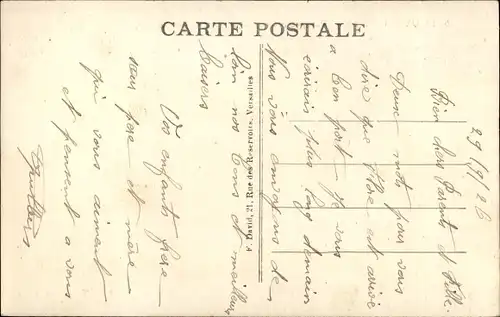 CARTE POSTALE
29/9/26
Bien chers Parents et Fille
Deux mots pour vous
dire que Flore est arrivée
a bon port je vous
écrirais plus long demain
Nous vous envoyons de
loin nos bons et meilleurs
baisers
Vos enfants frère
sœur père et mère
qui vous aiment
et pensent a vous
P. David, 21, Rue des Réservoirs, Versailles